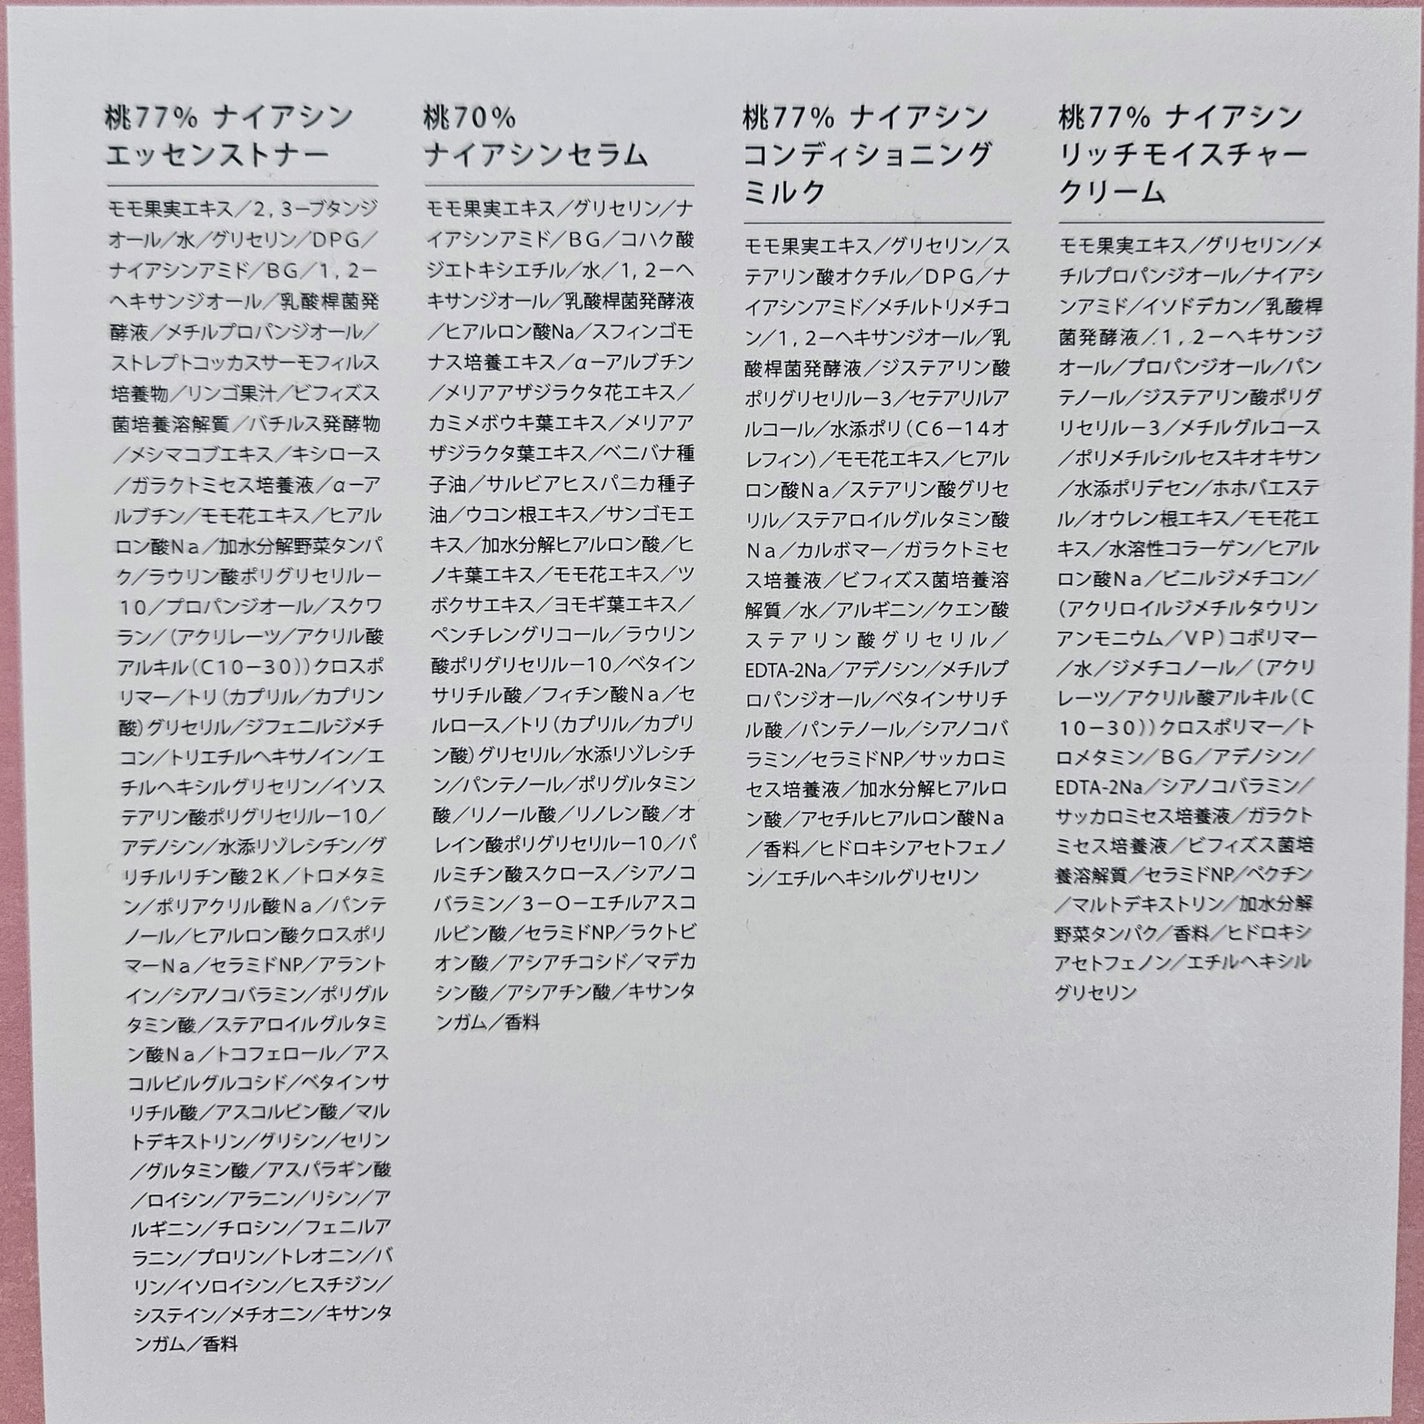 桃77% ナイアシン
エッセンストナー
モモ果実エキス／2，3ーブタンジ
オール／水／グリセリン／DPG／
ナイアシンアミド／BG／1，2ー
ヘキサンジオール／乳酸桿菌発
酵液／メチルプロパンジオール／
ストレプトコッカスサーモフィルス
培養物／リンゴ果汁／ビフィズス
菌培養溶解質／バチルス発酵物
／メシマコブエキス／キシロース
／ガラクトミセス培養液／αーア
ルブチン／モモ花エキス／ヒアル
ロン酸Na／加水分解野菜タンパ
ク／ラウリン酸ポリグリセリルー
10／プロパンジオール／スクワ
ラン／（アクリレーツ／アクリル酸
アルキル（C10ー30））クロスポ
リマー／トリ（カプリル／カプリン
酸）グリセリル／ジフェニルジメチ
コン／トリエチルヘキサノイン／エ
チルヘキシルグリセリン／イソス
テアリン酸ポリグリセリルー10／
アデノシン／水添リゾレシチン／グ
リチルリチン酸2K／トロメタミ
ン／ポリアクリル酸Na／パンテ
ノール／ヒアルロン酸クロスポリ
マーNa／セラミドNP／アラント
イン／シアノコバラミン／ポリグル
タミン酸／ステアロイルグルタミ
ン酸Na／トコフェロール／アス
コルビルグルコシド／ベタインサ
リチル酸／アスコルビン酸／マル
トデキストリン／グリシン／セリン
／グルタミン酸／アスパラギン酸
／ロイシン／アラニン／リシン／ア
ルギニン／チロシン／フェニルア
ラニン／プロリン／トレオニン／バ
リン／イソロイシン／ヒスチジン／
システイン／メチオニン／キサンタ
ンガム／香料
桃70%
ナイアシンセラム
モモ果実エキス／グリセリン／ナ
イアシンアミド／BG／コハク酸
ジエトキシエチル／水／1，2ーヘ
キサンジオール／乳酸桿菌発酵液
／ヒアルロン酸Na／スフィンゴモ
ナス培養エキス／αーアルブチン
／メリアアザジラクタ花エキス／
カミメボウキ葉エキス／メリアア
ザジラクタ葉エキス／ベニバナ種
子油／サルビアヒスパニカ種子
油／ウコン根エキス／サンゴモエ
キス／加水分解ヒアルロン酸／ヒ
ノキ葉エキス／モモ花エキス／ツ
ボクサエキス／ヨモギ葉エキス／
ペンチレングリコール／ラウリン
酸ポリグリセリルー10／ベタイン
サリチル酸／フィチン酸Na／セ
ルロース／トリ（カプリル／カプリ
ン酸）グリセリル／水添リゾレシチ
ン／パンテノール／ポリグルタミン
酸／リノール酸／リノレン酸／オ
レイン酸ポリグリセリルー10／パ
ルミチン酸スクロース／シアノコ
バラミン／3ーOーエチルアスコ
ルビン酸／セラミドNP／ラクトビ
オン酸／アシアチコシド／マデカ
シン酸／アシアチン酸／キサンタ
ンガム／香料
桃77% ナイアシン
コンディショニング
ミルク
モモ果実エキス／グリセリン／ス
テアリン酸オクチル／DPG／ナ
イアシンアミド／メチルトリメチコ
ン／1，2ーヘキサンジオール／乳
酸桿菌発酵液／ジステアリン酸
ポリグリセリルー3／セテアリルア
ルコール／水添ポリ（C6ー14オ
レフィン）／モモ花エキス／ヒアル
ロン酸Na／ステアリン酸グリセ
リル／ステアロイルグルタミン酸
Na／カルボマー／ガラクトミセ
ス培養液／ビフィズス菌培養溶
解質／水／アルギニン／クエン酸
ステアリン酸グリセリル／
EDTA-2Na／アデノシン／メチルプ
ロパンジオール／ベタインサリチ
ル酸／パンテノール／シアノコバ
ラミン／セラミドNP／サッカロミ
セス培養液／加水分解ヒアルロ
ン酸／アセチルヒアルロン酸Na
／香料／ヒドロキシアセトフェノ
ン／エチルヘキシルグリセリン
桃77% ナイアシン
リッチモイスチャー
クリーム
モモ果実エキス／グリセリン／メ
チルプロパンジオール／ナイアシ
ンアミド／イソドデカン／乳酸桿
菌発酵液／1，2ーヘキサンジ
オール／プロパンジオール／パン
テノール／ジステアリン酸ポリグ
リセリルー3／メチルグルコース
／ポリメチルシルセスキオキサン
／水添ポリデセン／ホホバエステ
ル／オウレン根エキス／モモ花エ
キス／水溶性コラーゲン／ヒアル
ロン酸Na／ビニルジメチコン／
（アクリロイルジメチルタウリン
アンモニウム／VP）コポリマー
／水／ジメチコノール／（アクリ
レーツ／アクリル酸アルキル（C
10ー30））クロスポリマー／ト
ロメタミン／BG／アデノシン／
EDTA-2Na／シアノコバラミン／
サッカロミセス培養液／ガラクト
ミセス培養液／ビフィズス菌培
養溶解質／セラミドNP／ペクチン
／マルトデキストリン／加水分解
野菜タンパク／香料／ヒドロキシ
アセトフェノン／エチルヘキシル
グリセリン